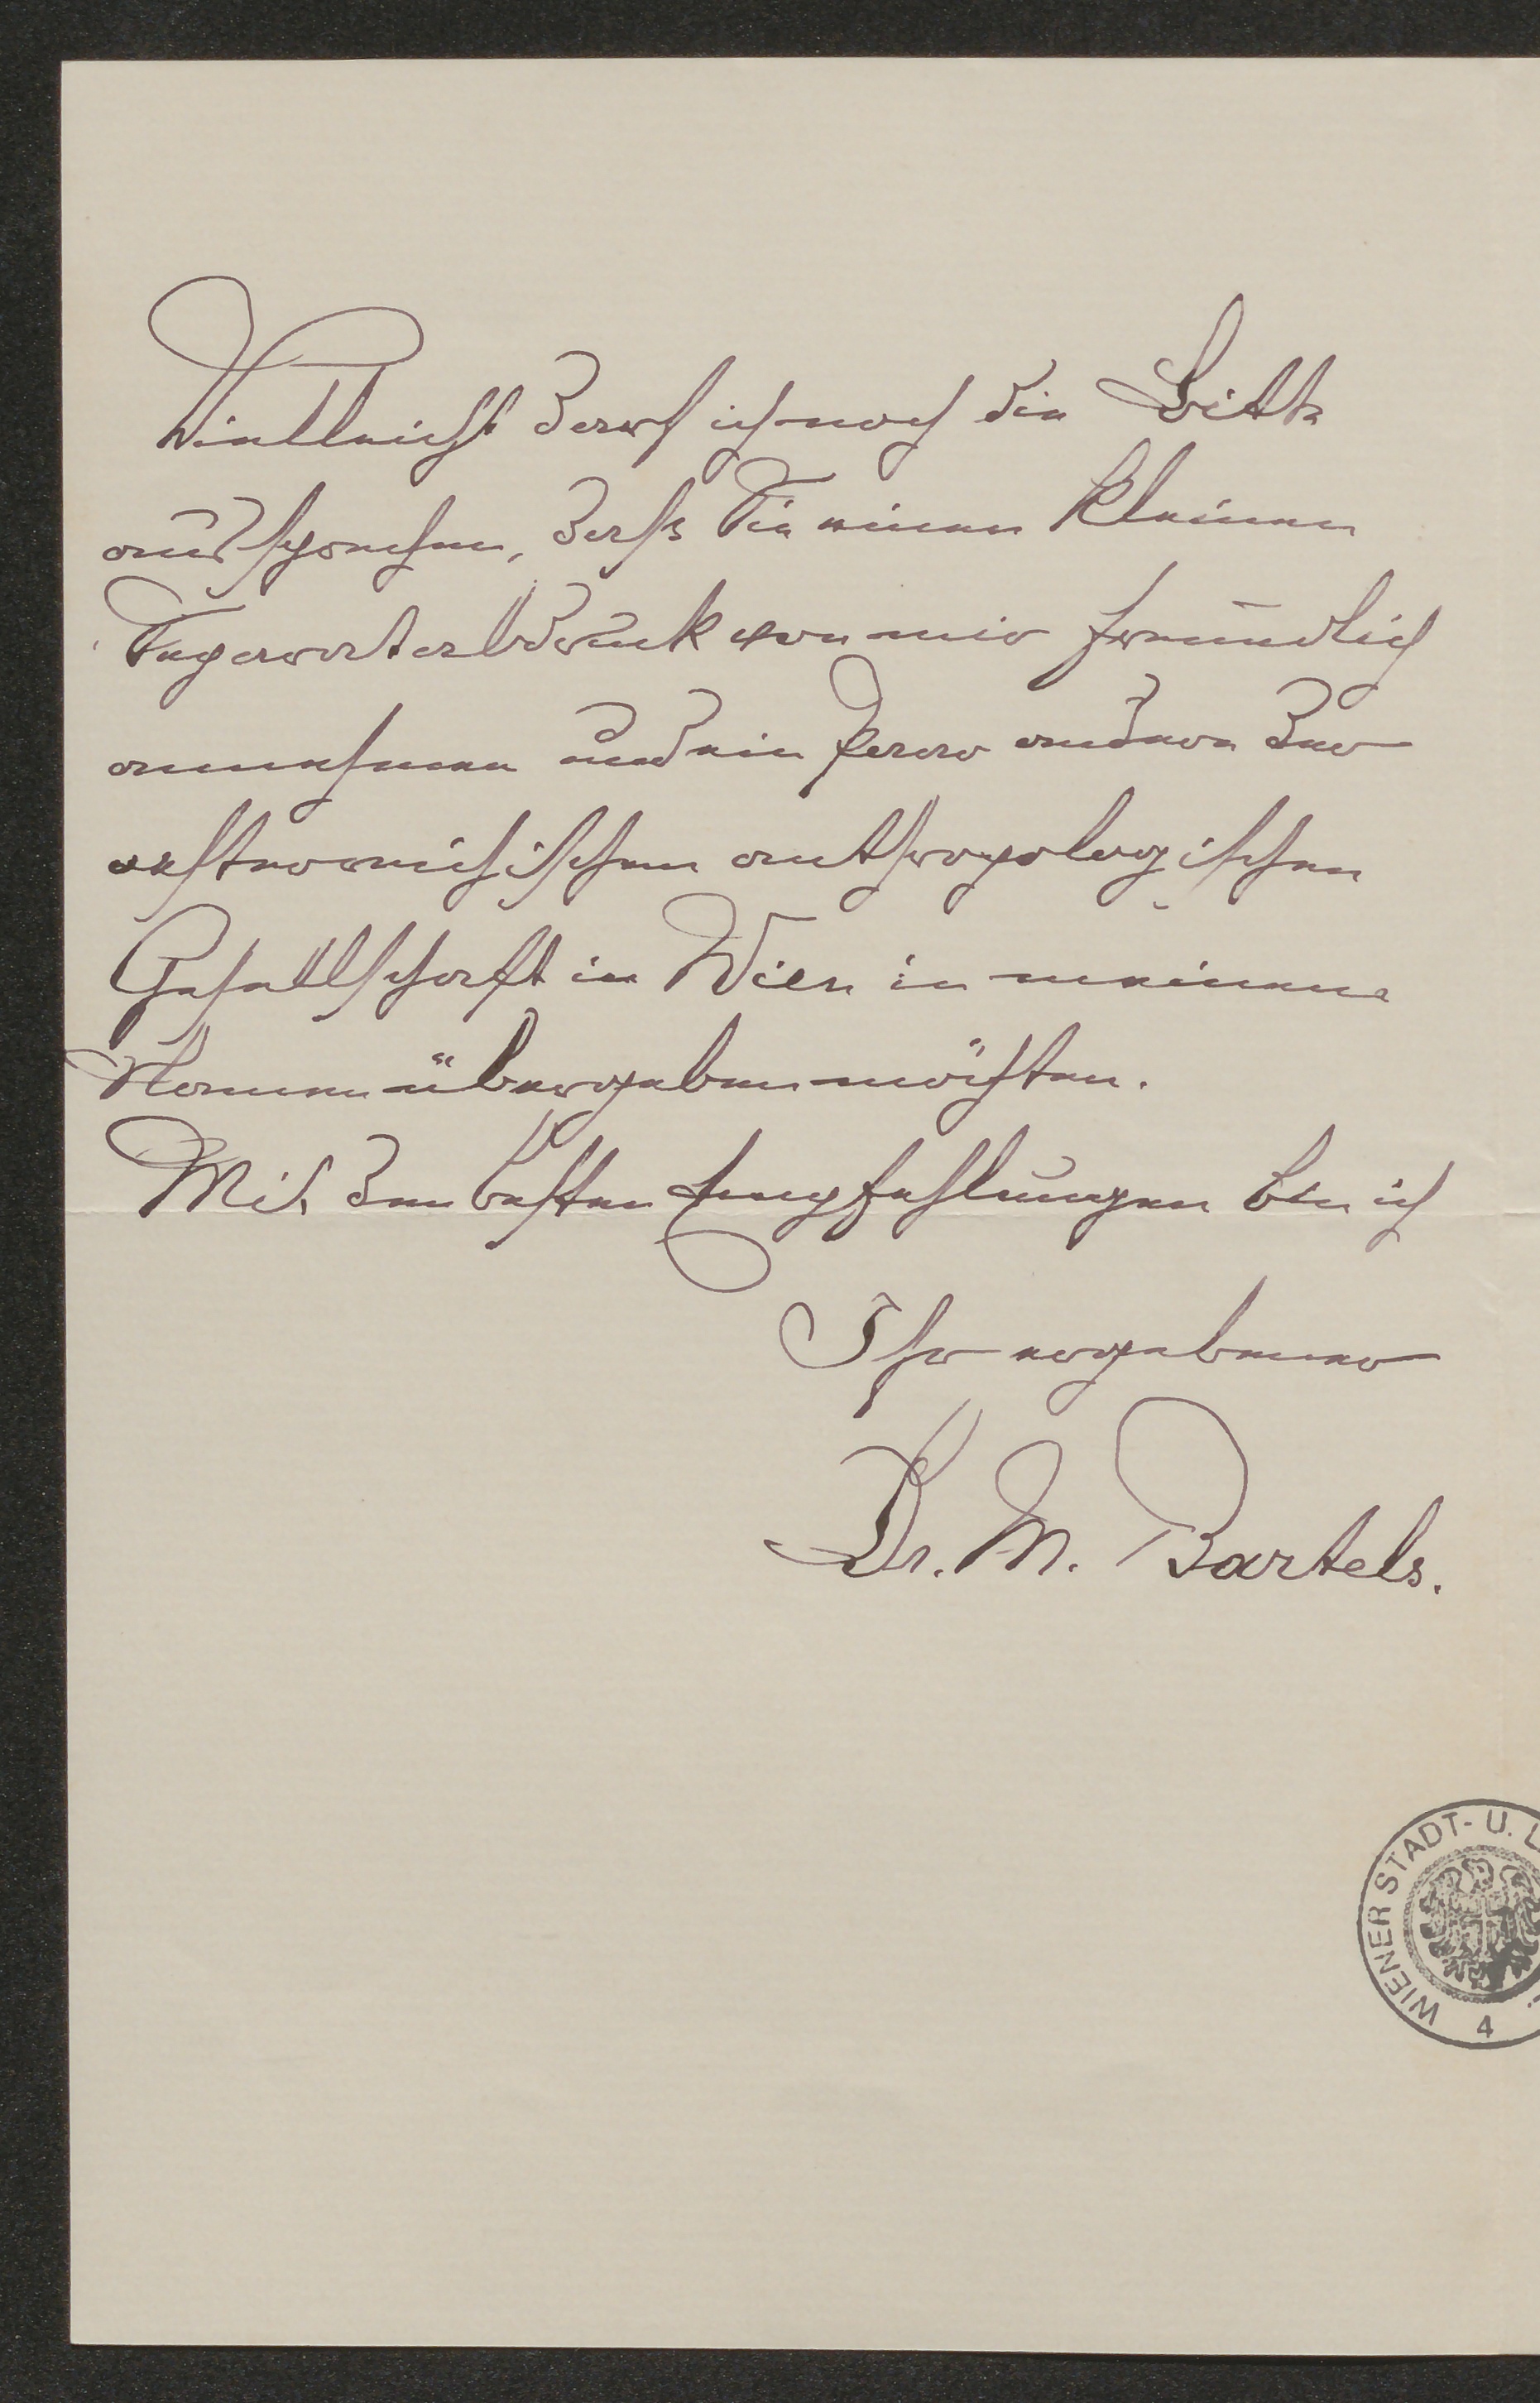 Vielleicht darf ich noch die Bitte
aussprechen, dass Sie einen kleinen
Separatabdruck von mir freundlich
annehmen und ein Paar andere der
oesterreichischen anthropologischen
Gesellschaft in Wien in meinem
Namen übergeben möchten.
Mit den besten Empfehlungen bin ich
Ihr ergebener
Dr. M. Bartels.
WIENER STADT- U. L
4